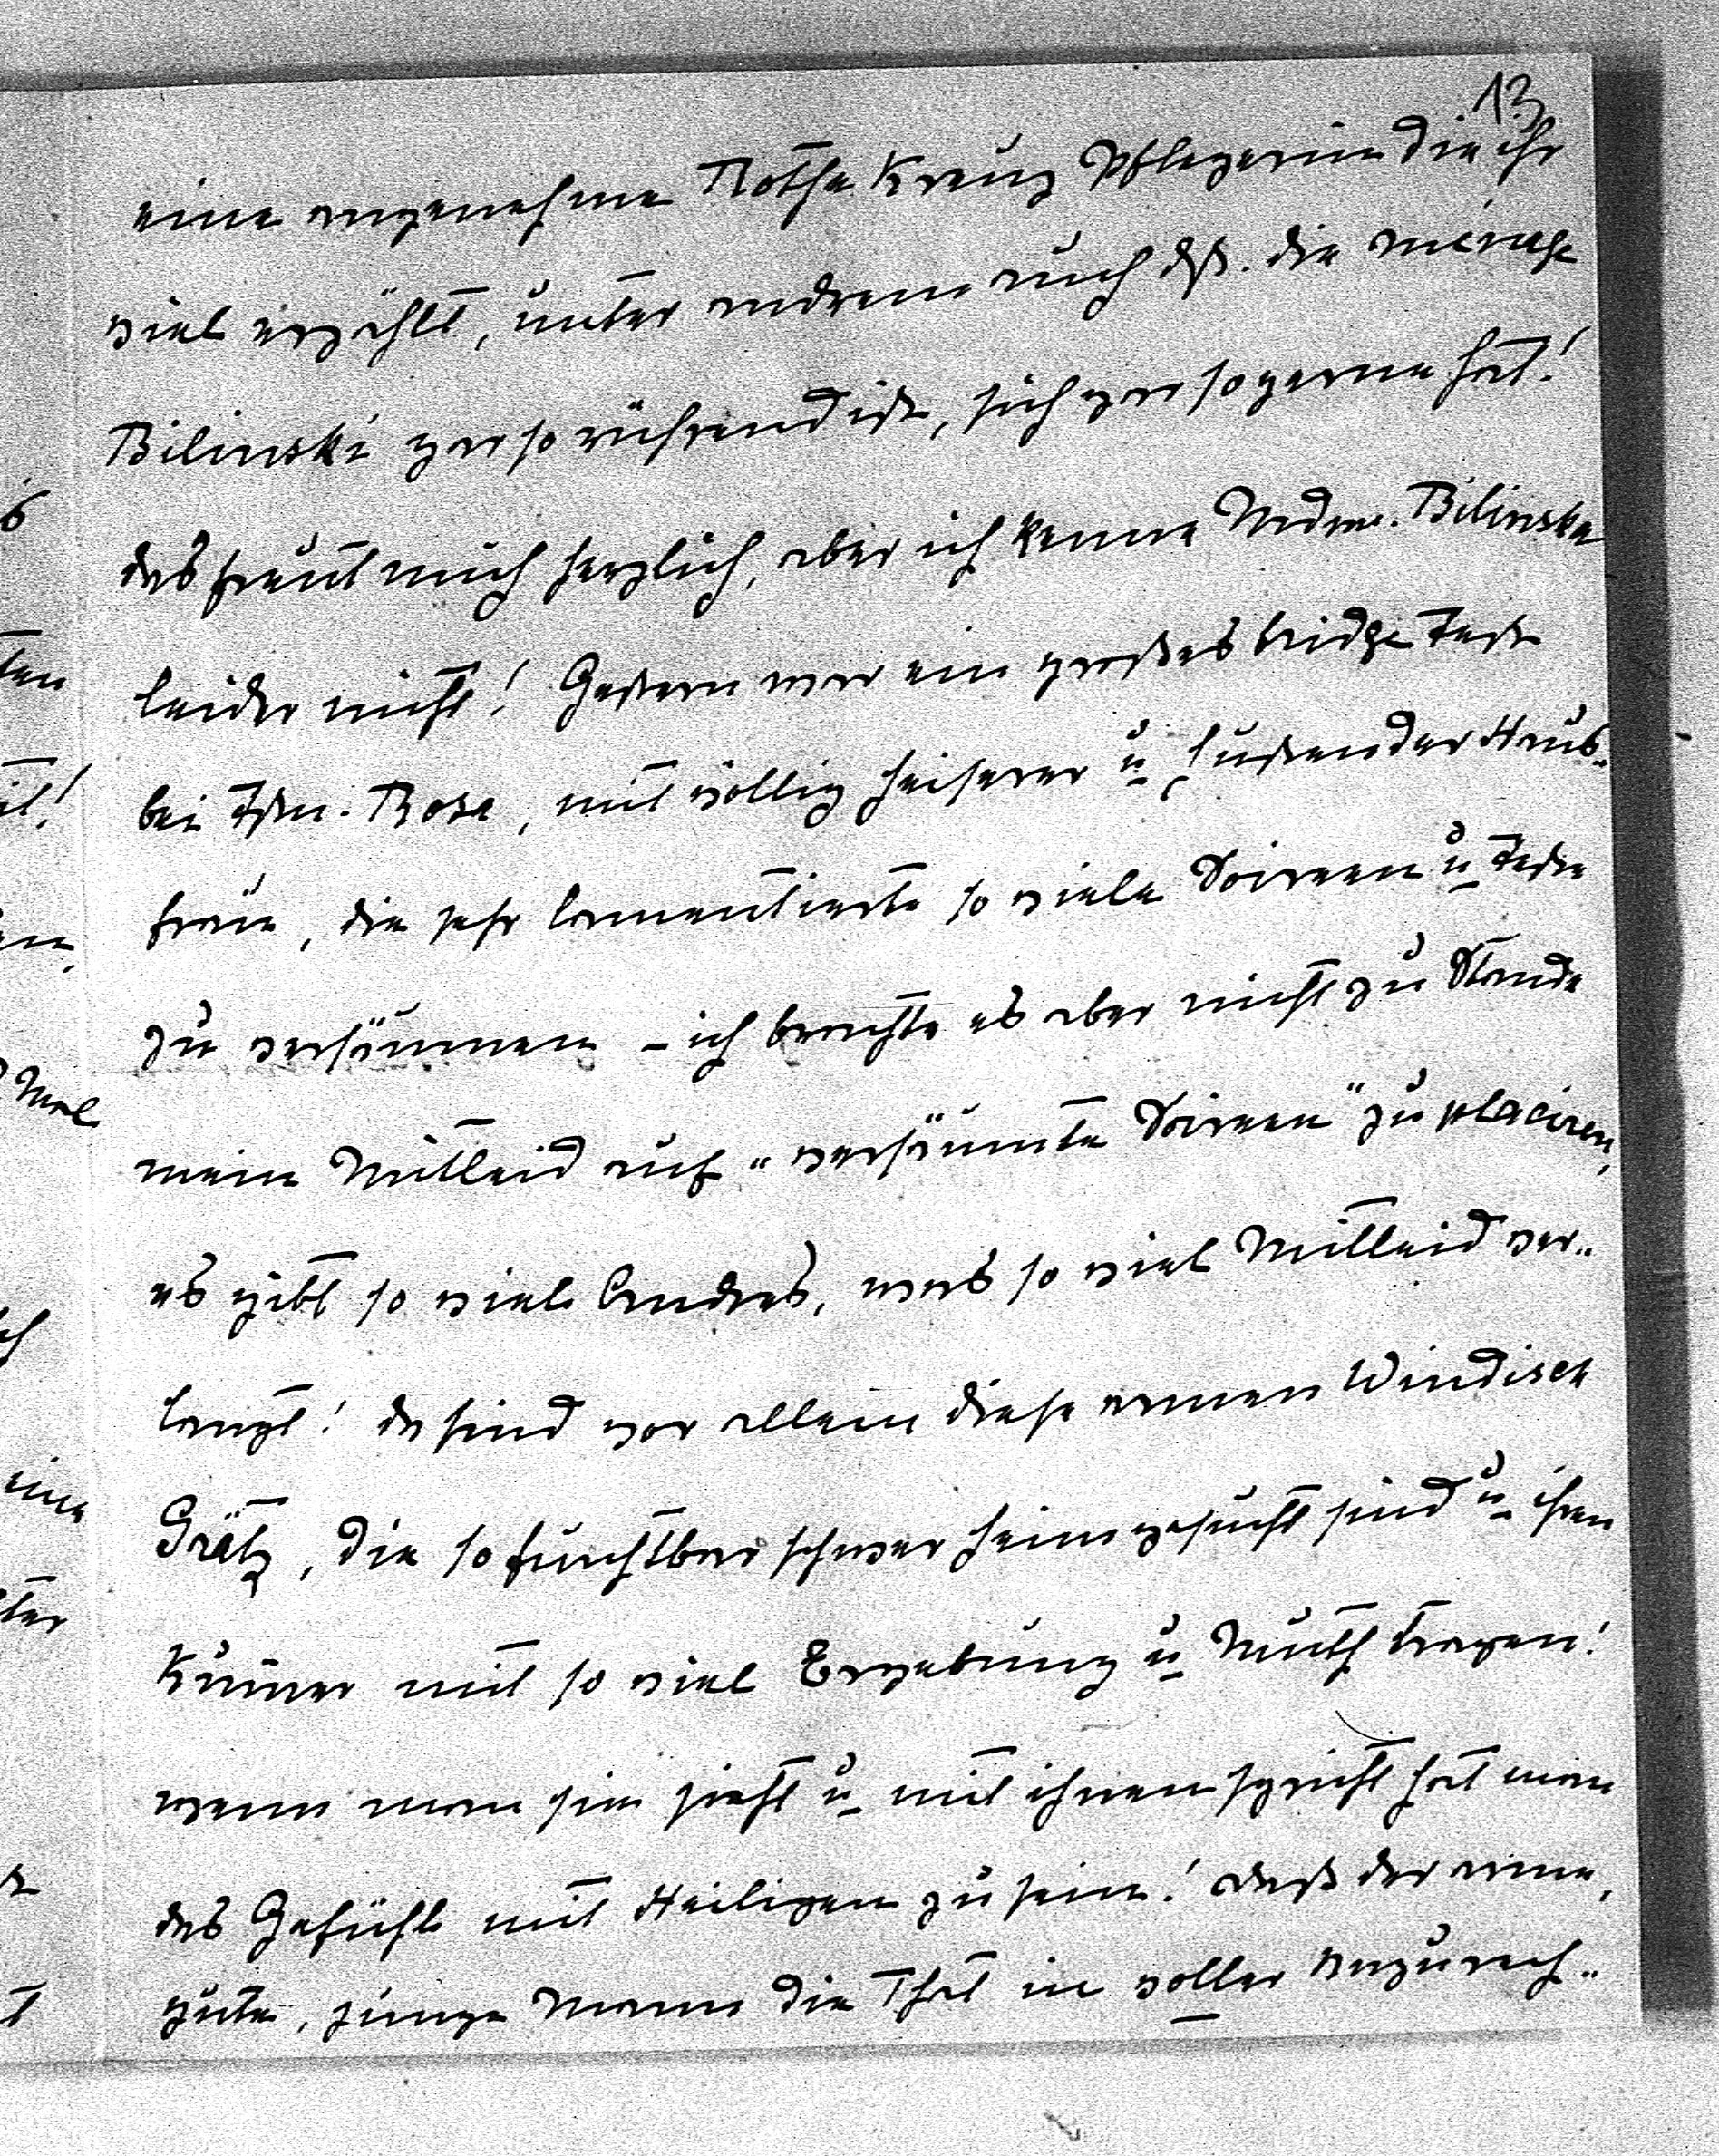 13
eine angenehme Rothe Kreuz Pflegerin die ihr
viel erzählt, unter andrem auch dß. die ménage
Bilinski gar so rührend ist, sich gar so gerne hat!
das freut mich herzlich, aber ich kenne Mdme. Bilinska
leider nicht! Gestern war ein großes bridge Fest
bei Fstn. Rosa, mit völlig heiserer u hustender Haus-
frau, die sehr lamentierte so viele Soireen u Feste
zu versäumen – ich brachte es aber nicht zu Stande
mein Mitleid auf "versäumte Soireen" zu placiren,
es gibt so viel Andres, was so viel Mitleid ver-
langt! da sind vor allem diese armen Windisch
Grätz, die so furchtbar schwer heimgesucht sind u ihren
Kummer mit so viel Ergebung u Muth tragen!
wenn man sie sieht u mit ihnen spricht hat man
das Gefühl mit Heiligen zu sein! daß der arme,
gute, junge Mann die That in voller Unzurech-
ten
it!
Mal
eine
ter